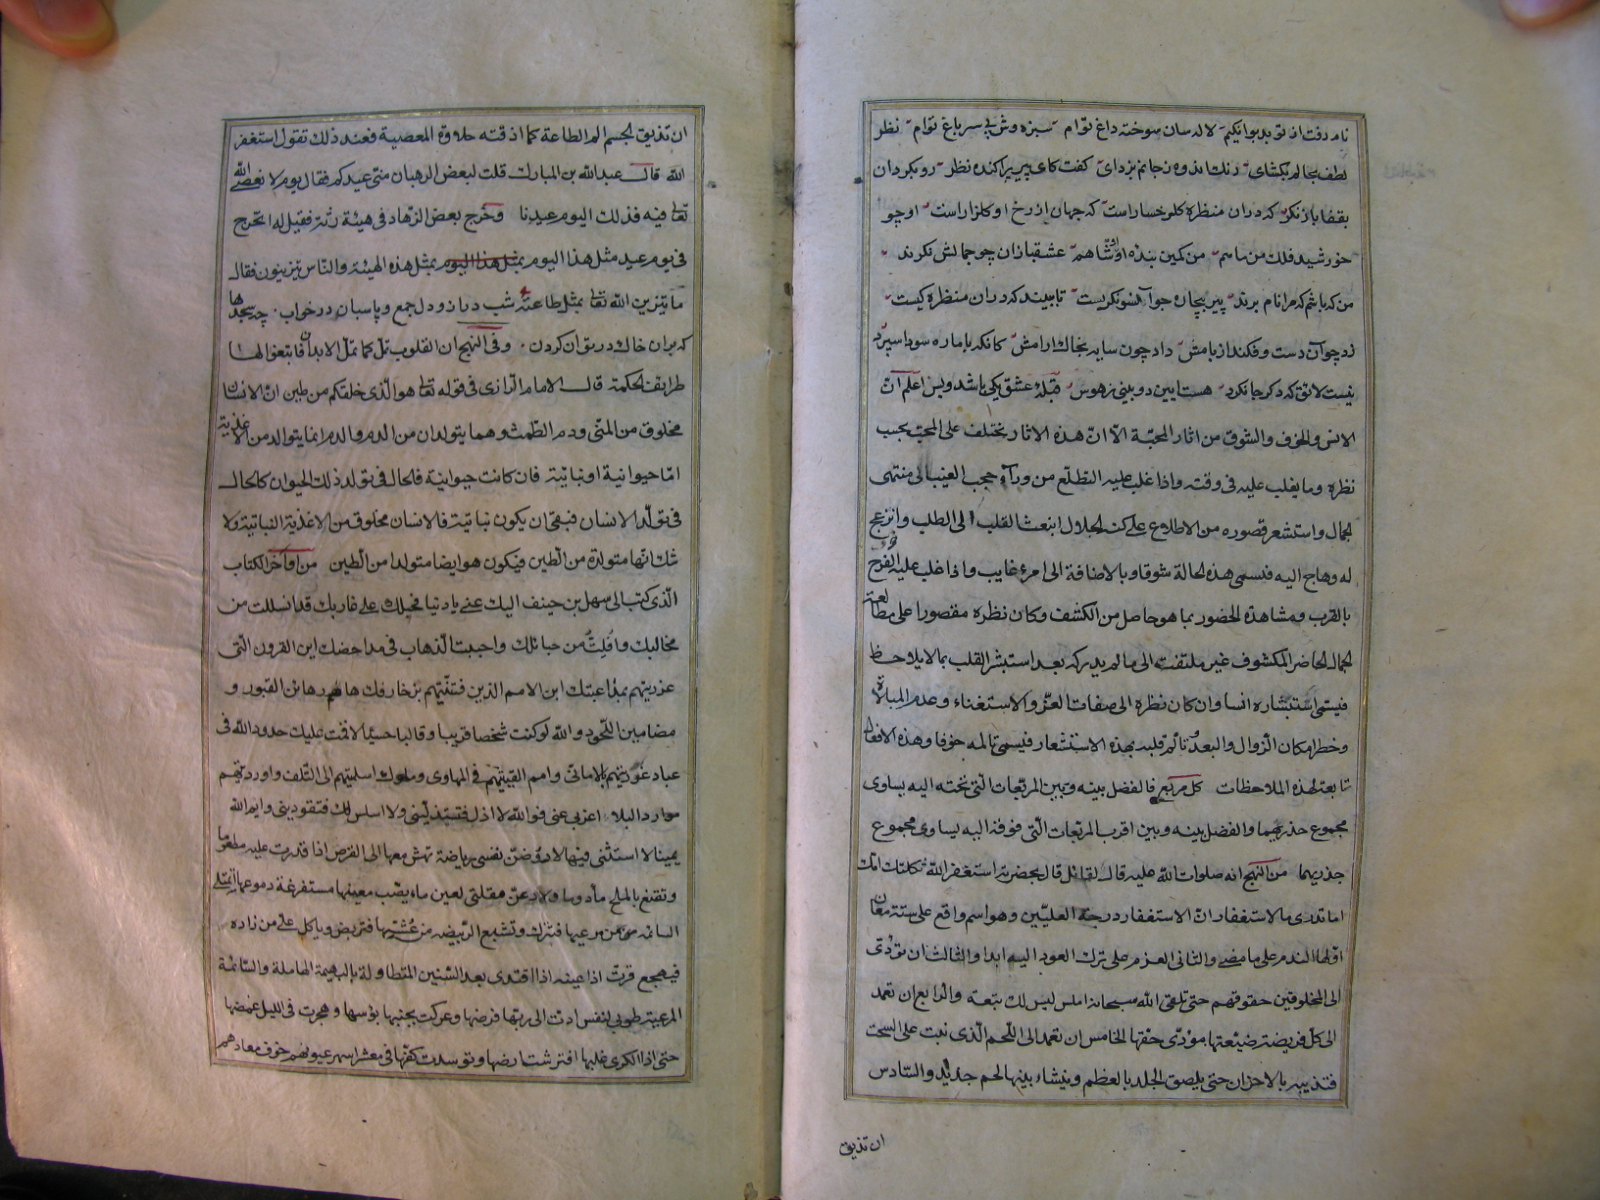 نام رفت از تو بدیوانگیم لاله سان سوخته داغ توام سبزه وش پی سر باغ توام نظر
لطف بحالم بکشای زنک اندوه ز جانم بزدای کفت کای پیر پراکنده نظر رو بکردان
بقفا باز نکر که دران منظره کلرخساراست که جهان از رخ او کلزاراست او چو
خورشید فلک من ماهم من کمین بنده او شاهم عشقبازان چو جمالش نکرند
من که باشم که مرا نام برند پیر بیچاره چو آنسو نکریست تا ببیند که دران منظره کیست
زد جوان دست و فکند از بامش داد چون سایه بخاک ارامش کانکه با ما ره سودا سپرد
نیست لایق که دکر جا نکرد هست ایین دو بینی ز هوس قبله عشق یکی باشد و بس اعلم ان
الانس والخوف والشوق من اثار المحبة الا ان هذه الاثار تختلف علی المحب بحسب
نظره وما یغلب علیه فی وقته واذا غلب علیه التطلع من ورآء حجب الغیب الی منتهی
الجمال واستشعر قصوره من الاطلاع علی کنه الجلال ابنعث القلب الی الطلب وانزعج
له وهاج الیه فیسمی هذه الحالة شوقا وبالاضافة الی امرء غایب واذا غلب علیه الفرح
بالقرب ومشاهدة الحضور بما هو حاصل من الکشف وکان نظره مقصورا علی مطالعة
الجمال الحاضر المکشوف غیر ملتفت الی ما لم یدرکه بعد استبشر القلب بما لایلاحظ
فیسمی استبشاره انسا وان کان نظره الی صفات العز والاستغناء وعدم المبالاة
وخطر امکان الزوال والبعد تالم قلبه بهذه الاستشعار فیسمی تالمه خوفا وهذه الافعال
تابعة لهذه الملاحظات کل مربع فالفضل بینه وبین المربعات التی تحته الیه یساوی
مجموع جذریهما والفضل بینه وبین اقرب المربعات التی فوقه الیه یساوی مجموع
جذریهما من النهج انه صلوات الله علیه قال لقائل قال بحضرته استغفر الله ثکلتک امک
اما تدری ما الاستغفار ان الاستغفار درجة العلیین وهو اسم واقع علی ستة معان
اولها الندم علی ما مضی والثانی العزم علی ترک العود الیه ابدا والثالث ان تؤدی
الی المخلوقین حقوقهم حتی تلقی الله سبحانه املس لیس لک تبعة والرابع ان تعمد
الی کل فریضة ضیعتها مؤدی حقها الخامس ان تعمد الی اللحم الذی نبت علی السحت
فتذیبه بالاحزان حتی یلصق الجلد بالعظم وینشاء بینها لحم جدید والسادس
ان تذیق
ان تذیق الجسم الم الطاعة کما اذقته حلاوة المعصیة فعند ذلک تقول استغفر
الله قال عبدالله بن المبارک قلت لبعض الرهبان متی عیدکم فقال یوم لا نعصی الله
تعالی فیه فذلک الیوم عیدنا وخرج بعض الزهاد فی هیئة رثة فقیل له اتخرج
فی یوم عید مثل هذا الیوم بمثل هذا الیوم بمثل هذه الهیئة والناس یتزینون فقال
ما یتزین الله تعالی بمثل طاعته شب دراز و دل جمع و پاسبان در خواب چه سجدها
که بران خاک در توان کردن وفی النهج ان القلوب تمل کما تمل الابدان فابتغوا لها
طرایف الحکمة قال الامام الرازی فی قوله تعالی هو الذی خلقکم من طین ان الانسان
مخلوق من المنی ودم الطمث وهما یتولدان من الدم والدم انما یتوالد من الاغذیة
اما حیوانیة او نباتیة فان کانت حیوانیة فالحال فی تولد ذلک الحیوان کالحال
فی تولد الانسان فبقی ان یکون نباتیة فالانسان مخلوق من الاغذیة النباتیة ولا
شک انها متولدة من الطین فیکون هو ایضا متولدا من الطین من اواخر الکتاب
الذی کتب الی سهل بن حنیف الیک عنی یا دنیا فحبلک علی غاربک قد انسللت من
مخالبک وافلت من حبائلک واجبنت الذهاب فی مداحضک این القرون التی
غررتیهم بمداعبتک این الامم الذین فتنتیهم بزخارفک ها هم رهائن القبور و
مضامین اللحود والله لو کنت شخصا قریبا وقالبا حسیا لاقمت علیک حدود الله فی
عباد غررتیهم بالامانی وامم القیتیهم فی المهاوی وملوک اسلمتیهم الی التلف واوردتیهم
موارد البلاء اعزبی عنی فوالله لا اذل فتستذلینی ولا اسلس لک فتقودینی وایم الله
یمینا لا استثنی فیها لاروضن نفسی ریاضة تهش معها الی القرص اذا قدرت علیه مطعوما
وتقنع بالملح مأدوما ولادعن مقلتی کعین ماء نضب معینها مستفرغة دموعها اتمتلی
السائمة من رعیها فتبرک وتشبع الربیضه من عشبها فتربض ویاکل علی من زاده
فیهجع قرت اذا عینه اذا اقتدی بعد السنین المتطاولة بالبهیمة الهاملة والسائمة
المرعیة طوبی لنفس ادت الی ربها فرضها وعرکت بجنبها بؤسها وهجرت فی اللیل غمضها
حتی اذا الکری غلبها افترشت ارضها وتوسدت کفها فی معشر اسهر عیونهم خوف معادهم